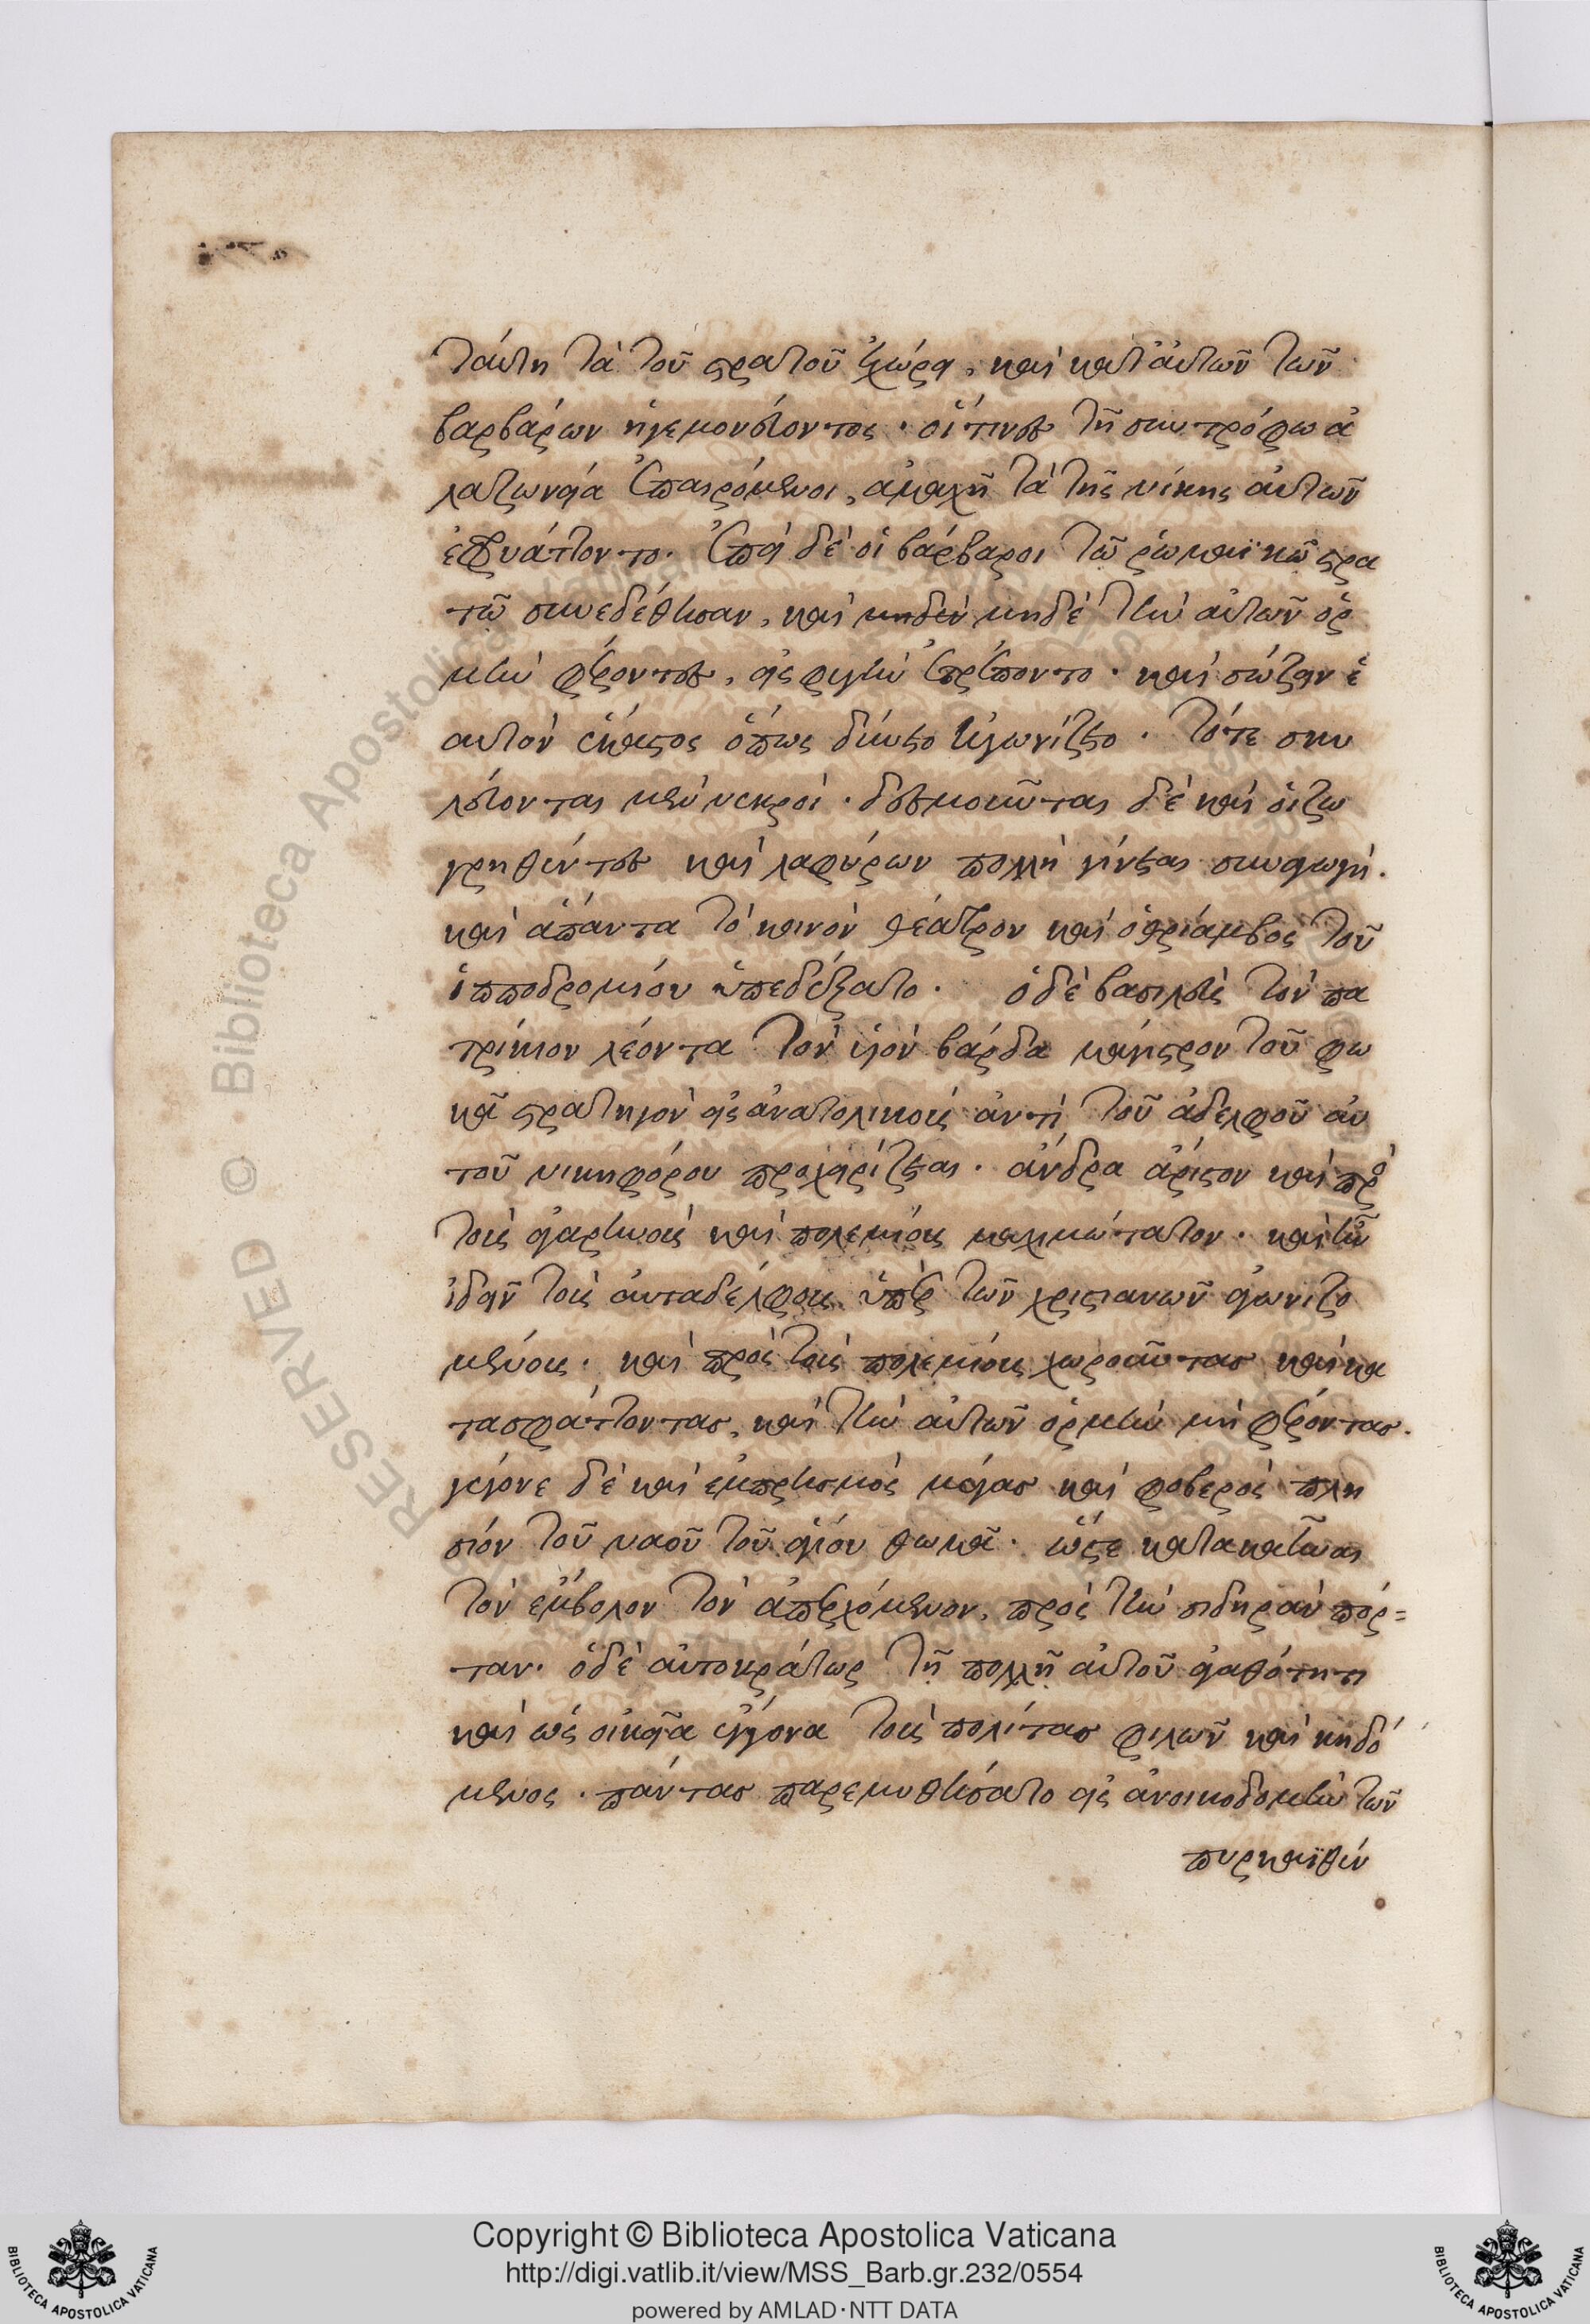 ταύτη τὰ τοῦ στρατοῦ ἐχώρει, καὶ κατ' αὐτῶν τῶν
βαρβάρων ἡγεμονεύοντος. οἵτινες τῇ συντρόφω ἀ
λαζωνεία ἐπαιρόμενοι, ἀμαχῆ τὰ τῆς νίκης αὐτῶν
ἐφρυάττοντο. ἐπεὶ δὲ οἱ βάρβαροι τῶ ῥωμαϊκῶ στρα
τῶ συνεδέθησαν, καὶ μηδὲ τὴν αὐτῶν ὁρ
μὴν φέροντες, εἰς φυγὴν ἐτρέποντο. καὶ σώζειν ἑ
αυτὸν ἕκαστος ὅπως δύναιτο ἠγωνίζετο. τότε συλ
λεύονται μὲν νεκροί. δεσμοῦνται δὲ καὶ οἱ ζω
γρηθέντες καὶ λαφύρων πολλὴ γίνεται συναγωγή.
καὶ ἅπαντα τὸ κοινὸν θέατρον καὶ ὁ θρίαμβος τοῦ
ἱπποδρομίου ὑπεδέξατο. ὁ δὲ βασιλεὺς τὸν πα
τρίκιον λέοντα τὸν υἱὸν βάρδα καίσαρος τοῦ φω
κᾶ στρατηγὸν εἰς ἀνατολικοὺς ἀντὶ τοῦ ἀδελφοῦ αὐ
τοῦ νικηφόρου προχειρίζεται. ἄνδρα ἄριστον καὶ πρὸς
τοὺς ἀγαρηνοὺς καὶ πολεμίους μαχιμώτατον. καὶ ἦν
ἰδεῖν τοὺς αὐταδέλφους ὑπὲρ τῶν χριστιανῶν ἀγωνιζο
μένους. καὶ πρὸς τοὺς πολεμίους χωροῦντας καὶ κα
τασφάττοντας, καὶ τὴν αὐτῶν ὁρμὴν μὴ φέροντας.
γέγονε δὲ καὶ ἐμπρησμὸς μέγας καὶ φοβερὸς πλη
σίον τοῦ ναοῦ τοῦ ἁγίου θωμᾶ. ὥστε κατακαῆναι
τὸν ἔμβολον τὸν ἀπερχόμενον, πρὸς τὴν σιδηρᾶν πόρ=
ταν. ὁ δὲ αὐτοκράτωρ τῇ πολλῇ αὐτοῦ ἀγαθότητι
καὶ ὡς οἰκεῖα ἔγγονα τοὺς πολίτας φιλῶν καὶ κηδό
μενος. πάντας παρεμυθήσατο εἰς ἀνοικοδομὴν τῶν
πυρκαϊθέν
Copyright © Biblioteca Apostolica Vaticana
http://digi.vatlib.it/view/MSS_Barb.gr.232/0554
powered by AMLAD · NTT DATA